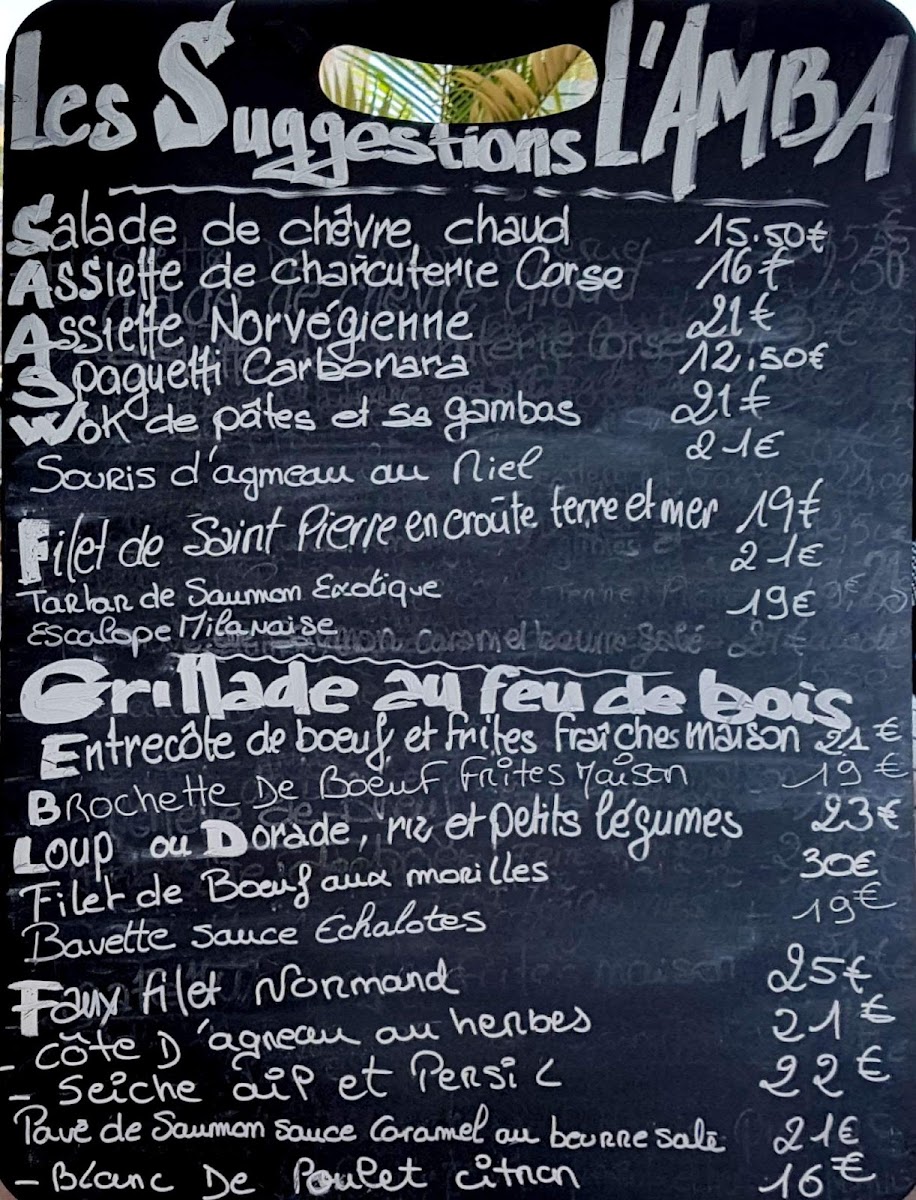 Les Suggestions L'AMBA
Salade de chêvre chaud 15.50€
Assiette de charcuterie Corse 16€
Assiette Norvégienne 21€
Spaguetti Carbonara 12,50€
Wok de pâtes et sa gambas 21€
Souris d'agneau au Miel 21€
Filet de Saint Pierre en croûte terre et mer 19€
Tartar de Saumon Exotique 21€
Escalope Milanaise 19€
Grillade au feu de bois
Entrecôte de boeuf et frites fraîches maison 21€
Brochette De Boeuf Frites Maison 19€
Loup ou Dorade, riz et petits légumes 23€
Filet de Boeuf aux morilles 30€
Bavette sauce Echalotes 19€
Faux filet Normand 25€
- Côte D'agneau au herbes 21€
- Seiche aip et Persil 22€
Pavé de Saumon sauce Caramel au beurre salé 21€
- Blanc De Poulet citron 16€